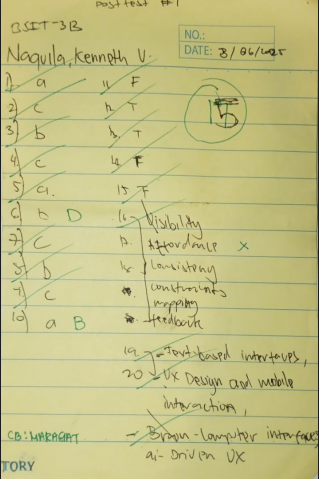 Post test #1
BSIT-3B
NO.:
DATE: 3/06/2025
Naquila, Kenneth V.
15
1) a
2) c
3) b
4) c
5) a.
6) b D
7) c
8) b
9) c
10) a B
11. F
12. T
13. T
14. F
15. F
16. Visibility
17. Affordance x
18. Consistency
constraints
mapping
feedback
19 - Text based interfaces,
20 - UX Design and mobile
interaction,
- Brain-computer interfaces
ai-Driven UX
CB: MARAGAT
TORY